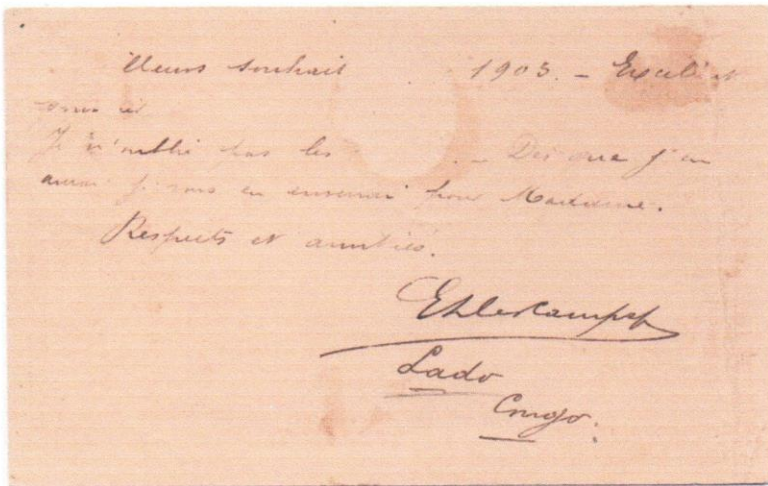 illeurs souhait 1903. -
Je n'oublie pas les - Dès que j'en
aurai je vous en enverrai pour Madame.
Respects et amitiés.
Lado
Congo.